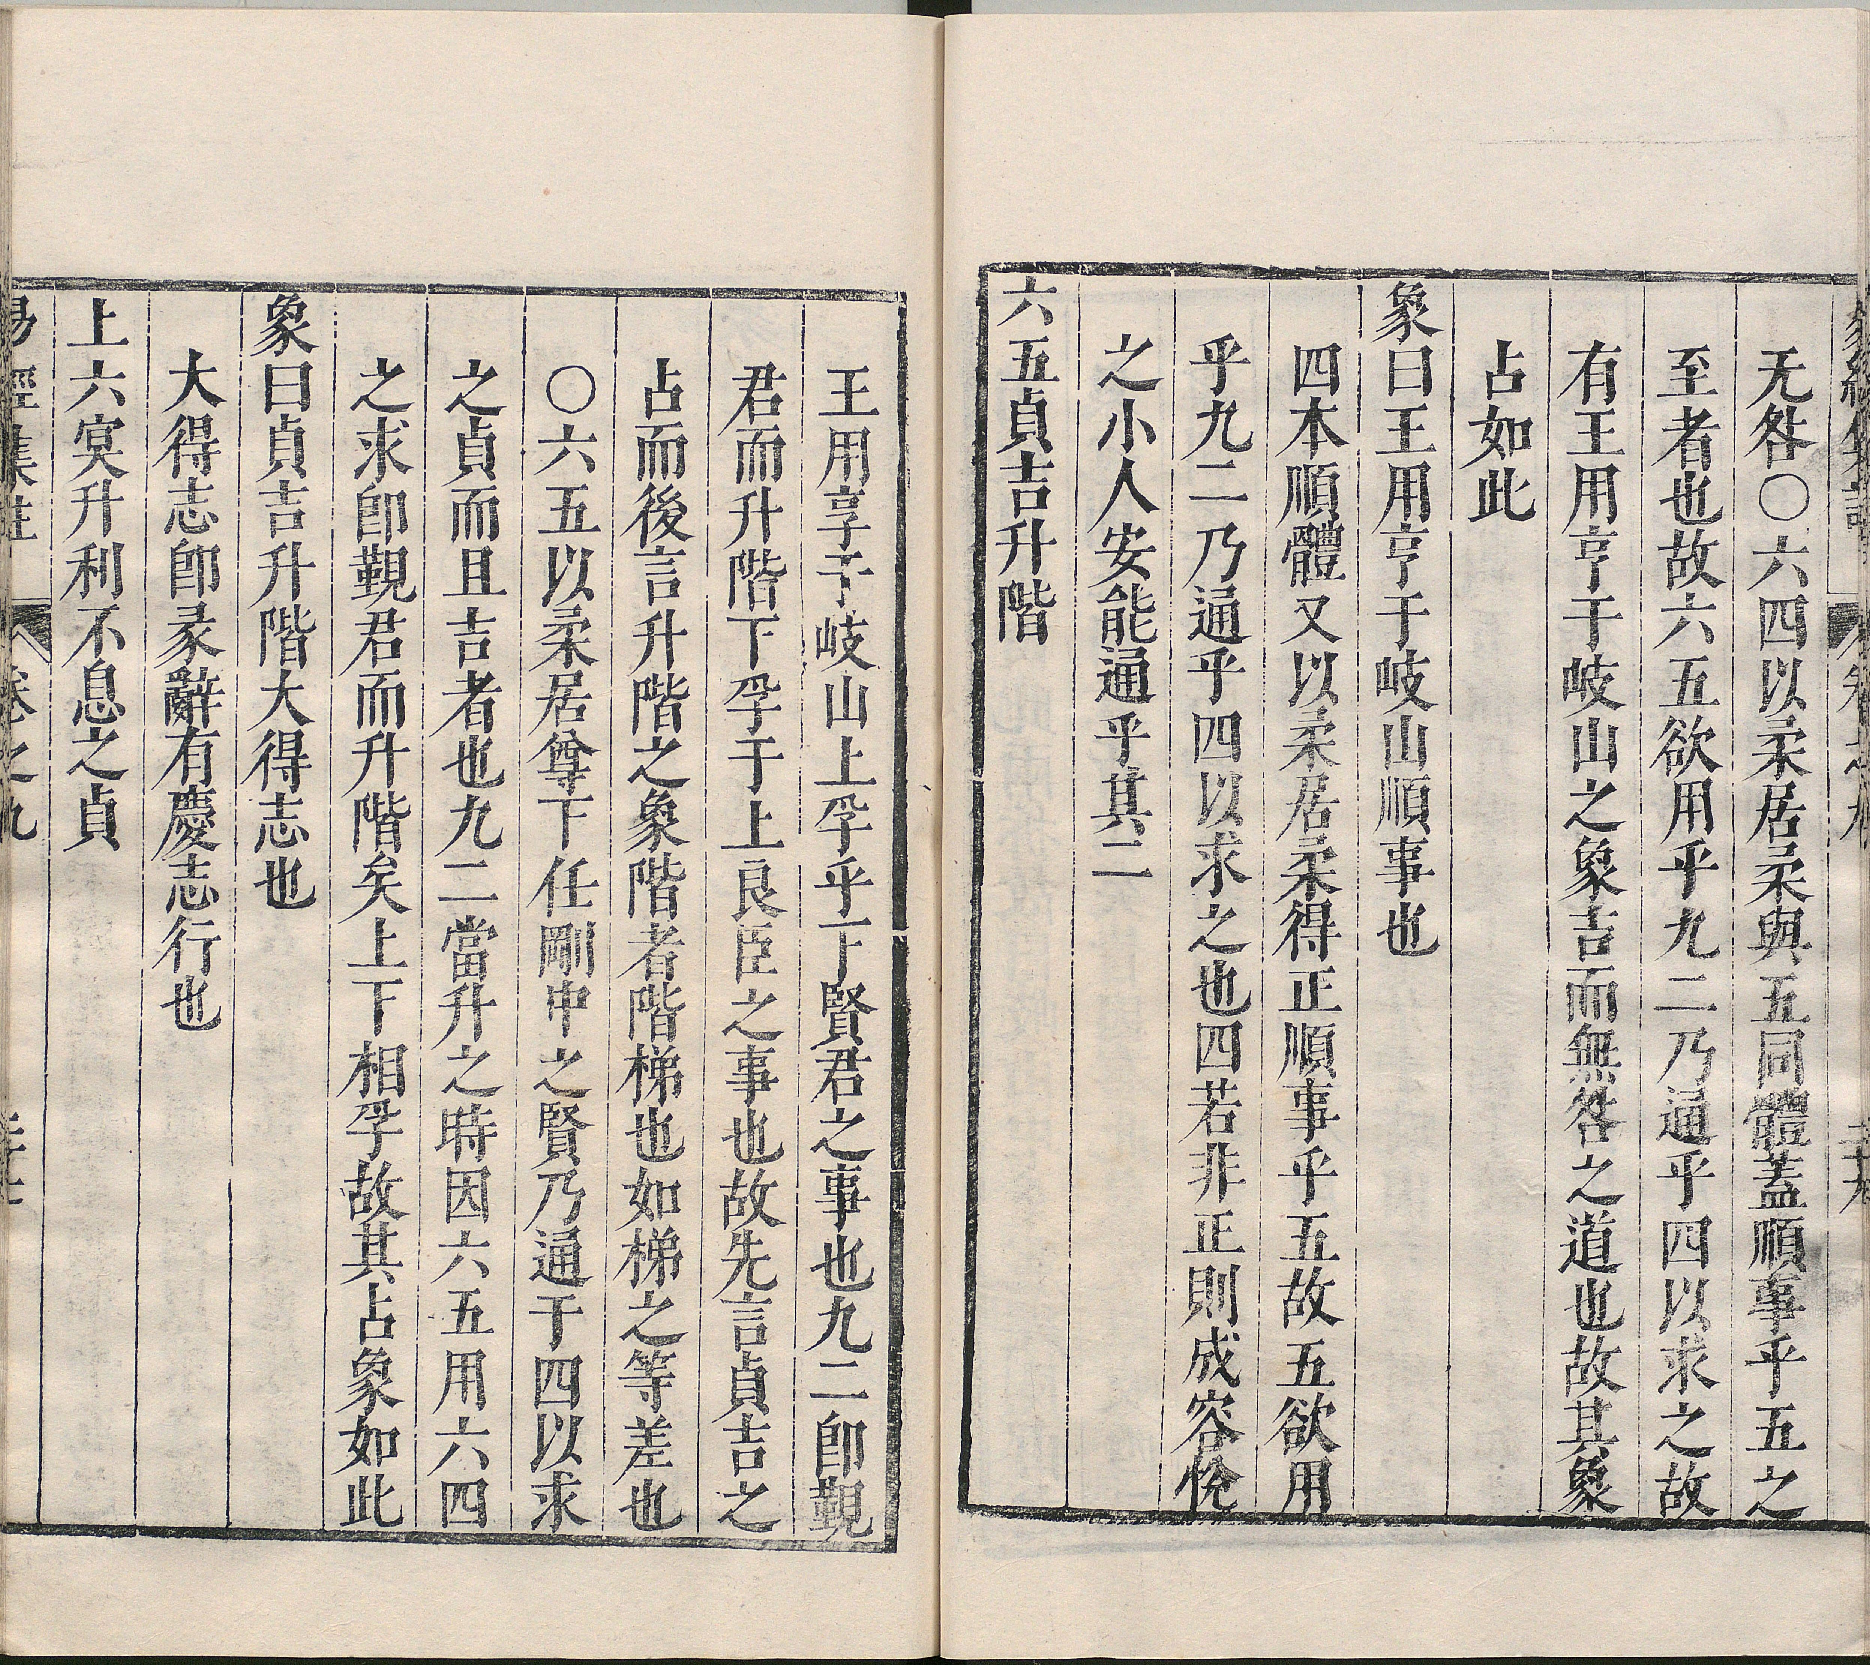 无咎〇六四以柔居柔與五同體蓋順事乎五之
至者也故六五欲用乎九二乃通乎四以求之故
有王用亨于岐山之象吉而無咎之道也故其象
占如此
象曰王用亨于岐山順事也
四本順體又以柔居柔得正順事乎五故五欲用
乎九二乃通乎四以求之也四若非正則成容悅
之小人安能通乎其二
六五貞吉升階
王用享于岐山上孚乎下賢君之事也九二即觀
君而升階下孚于上良臣之事也故先言貞吉之
占而後言升階之象階者階梯也如梯之等差也
〇六五以柔居尊下任剛中之賢乃通于四以求
之貞而且吉者也九二當升之時因六五用六四
之求即覲君而升階矣上下相孚故其占象如此
象曰貞吉升階大得志也
大得志即彖辭有慶志行也
上六冥升利不息之貞
易經集註 卷之九